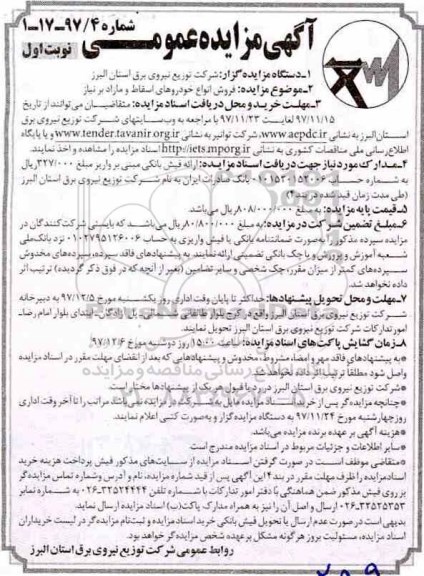 آگهی مزایده عمومی
شماره ۹۷/۴-۱۷-۱
نوبت اول
۱-دستگاه مزایده گزار: شرکت توزیع نیروی برق استان البرز
۲-موضوع مزایده: فروش انواع خودروهای اسقاط و مازاد بر نیاز
۳-مهلت خرید و محل دریافت اسناد مزایده: متقاضیان می‌توانند از تاریخ
۹۷/۱۱/۱۵ لغایت ۹۷/۱۱/۲۳ با مراجعه به وب‌سایتهای شرکت توزیع نیروی برق
استان البرز به نشانی www.aepdc.ir، شرکت توانیر به نشانی www.tender.tavanir.org.ir و یا پایگاه
اطلاع‌رسانی ملی مناقصات کشوری به نشانی http://iets.mporg.ir اسناد مزایده را مشاهده و اخذ نمایند.
۴-مدارک مورد نیاز جهت دریافت اسناد مزایده: ارائه فیش بانکی مبنی بر واریز مبلغ ۳۲۷/۰۰۰ ریال
به شماره حساب بانک صادرات ایران به نام شرکت توزیع نیروی برق استان البرز
(طی مدت زمان قید شده در بند ۳)
۵-قیمت پایه مزایده: به مبلغ ۸۰۸/۰۰۰/۰۰۰ ریال می‌باشد.
۶-مبلغ تضمین شرکت در مزایده: به مبلغ ۸۰/۸۰۰/۰۰۰ ریال می‌باشد که بایستی شرکت‌کنندگان در
مزایده سپرده مذکور را به‌صورت ضمانتنامه بانکی یا فیش واریزی به حساب ۰۱۰۲۷۹۵۱۲۶۰۰۶ نزد بانک ملی
شعبه آموزش و پرورش و یا چک بانکی تضمینی ارائه نمایند. به پیشنهادهای فاقد سپرده، سپرده‌های مخدوش
سپرده‌های کمتر از میزان مقرر، چک شخصی و سایر تضامین (بغیر از آنچه که در فوق ذکر گردیده) ترتیب اثر
داده نخواهد شد.
۷-مهلت و محل تحویل پیشنهادها: حداکثر تا پایان وقت اداری روز یکشنبه مورخ ۹۷/۱۲/۵ به دبیرخانه
شرکت توزیع نیروی برق استان البرز واقع در کرج بلوار طالقانی شمالی، پل آزادگان، ابتدای بلوار امام رضا-
امور تدارکات شرکت توزیع نیروی برق استان البرز تحویل نمایند.
۸-زمان گشایش پاکت‌های اسناد مزایده: ساعت ۱۵:۰۰ روز دوشنبه مورخ ۹۷/۱۲/۶
*به پیشنهادهای فاقد مهر و امضا، مشروط، مخدوش و پیشنهادهایی که بعد از انقضای مهلت مقرر در اسناد مزایده
واصل شود مطلقا ترتیب اثر داده نخواهد شد.
*شرکت توزیع نیروی برق استان البرز در رد یا قبول هر یک از پیشنهادها مختار است.
*چنانچه مزایده گر پس از خرید اسناد مزایده مایل به شرکت در مزایده نمی‌باشد مراتب را تا آخر وقت اداری
روز چهارشنبه مورخ ۹۷/۱۱/۲۴ به دستگاه مزایده گزار و به‌صورت کتبی اعلام نمایند.
*هزینه آگهی بر عهده برنده مزایده می‌باشد.
*سایر اطلاعات و جزئیات مربوط در اسناد مزایده مندرج است
*متقاضی موظف است در صورت گرفتن اسناد مزایده از سایت‌های مذکور فیش پرداخت هزینه خرید
اسناد مزایده را ظرف مهلت مقرر در بند ۳ این آگهی پس از قید شماره مزایده، نام و آدرس و شماره تماس مزایده گر
بر روی فیش مذکور ضمن هماهنگی با دفتر امور تدارکات با شماره تلفن ۰۲۶-۳۲۵۲۴۴۲۴ به شماره نمابر
۰۲۶-۳۲۵۲۵۳۵۳ ارسال و اصل آن را نیز به همراه مدارک پاکت(ب) اسناد مزایده ارسال نماید.
بدیهی است در صورت عدم ارسال یا تحویل فیش بانکی خرید اسناد مزایده و ثبت‌نام مزایده گر در لیست خریداران
اسناد مزایده، مسئولیت بروز هرگونه مشکل بر عهده شخص مزایده گر خواهد بود.
روابط عمومی شرکت توزیع نیروی برق استان البرز